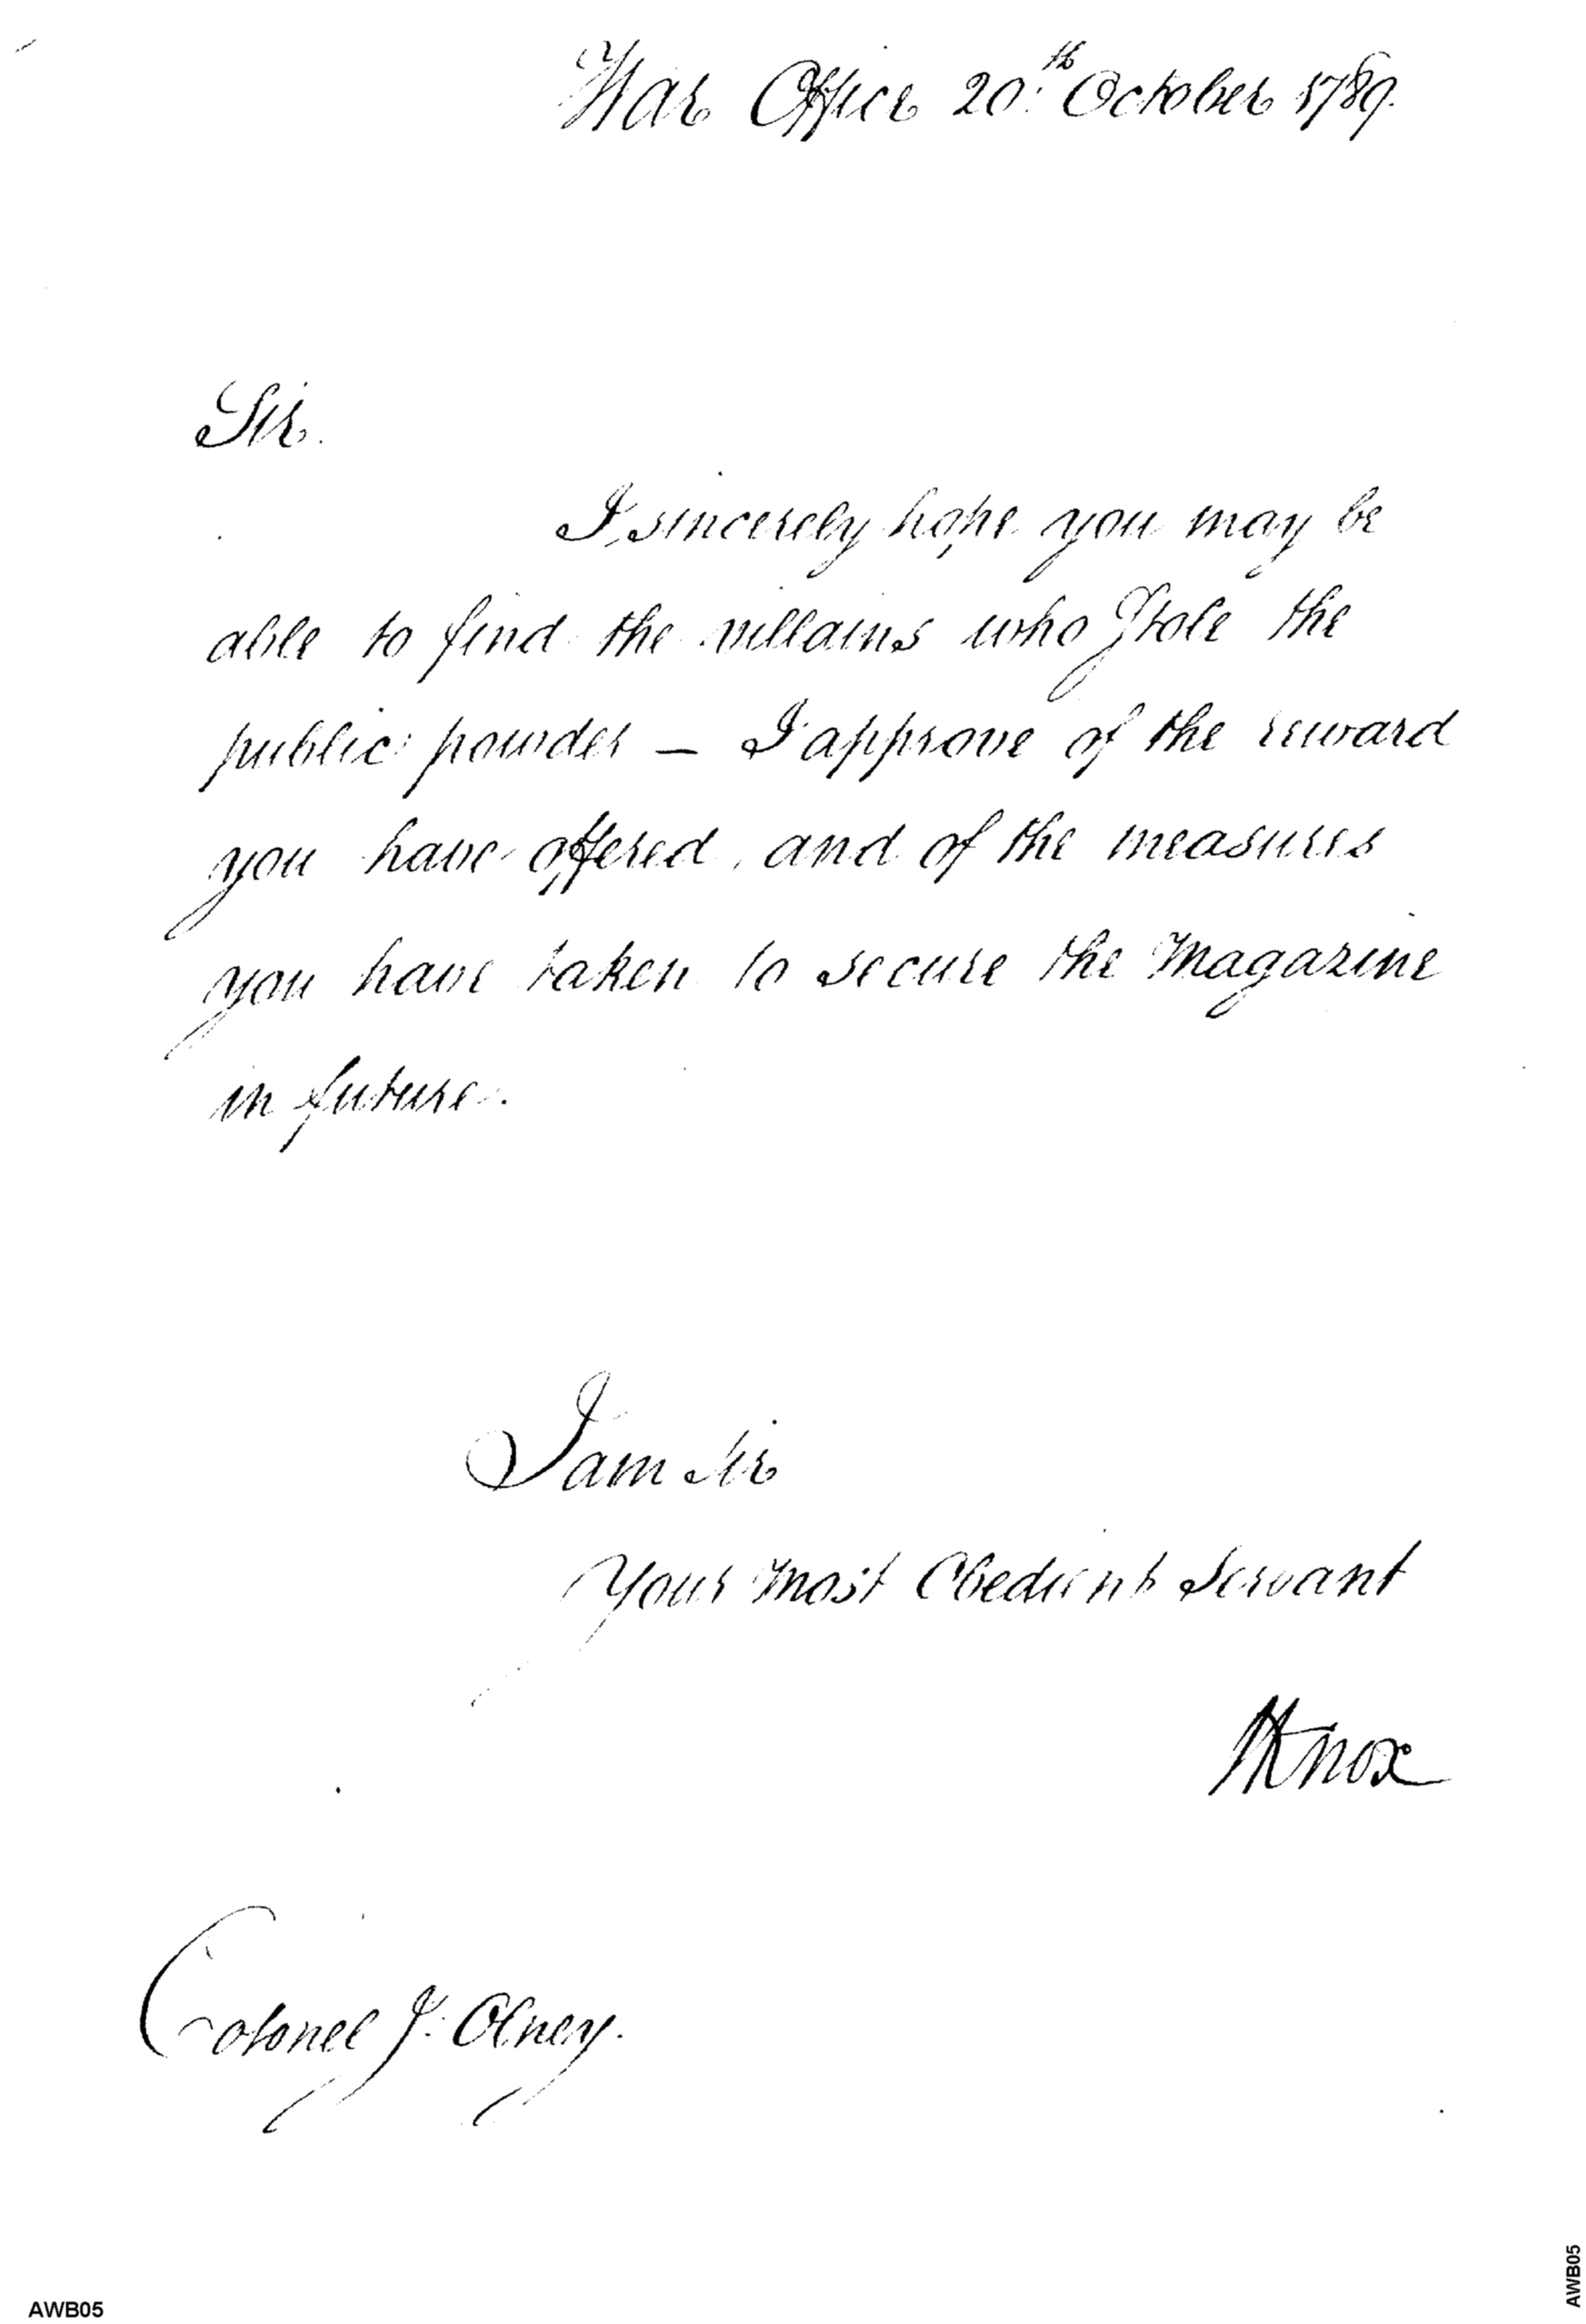 War Office 20th October 1789.
Sir.
I sincerely hope you may be
able to find the villains who Stole the
public powder — I approve of the reward
you have offered, and of the measures
you have taken to secure the Magazine
in future.
I am Sir
Your Most Obedient Servant
HKnox
Colonel J. Olney.
AWB05
AWB05